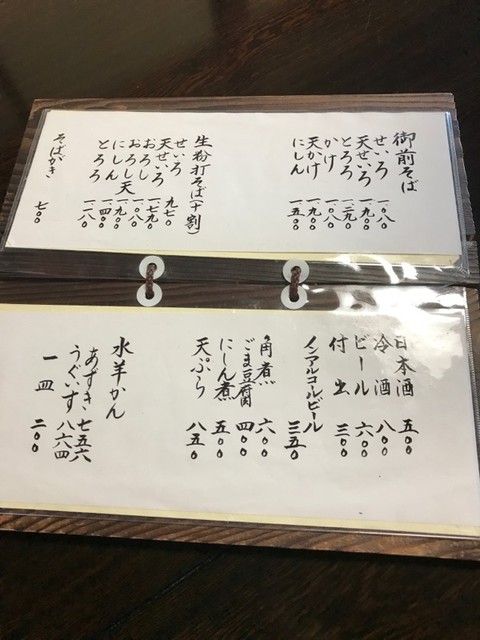 御前そば
せいろ 一.〇八〇
天せいろ 一.九〇〇
とろろ 一.二九〇
かけ 一.〇八〇
天かけ 一.九〇〇
にしん 一.五〇〇
生粉打そば(十割)
せいろ 九七〇
天せいろ 一.七九〇
おろし 一.〇八〇
おろし天 一.九〇〇
にしん 一.四〇〇
とろろ 一.一八〇
そばがき 七〇〇
日本酒 五〇〇
冷酒 八〇〇
ビール 六〇〇
付出 三〇〇
ノンアルコールビール 三五〇
角煮 六〇〇
ごま豆腐 四〇〇
にしん煮 五〇〇
天ぷら 八五〇
水羊かん
あずき 七五六
うぐいす 八六四
一皿 二〇〇